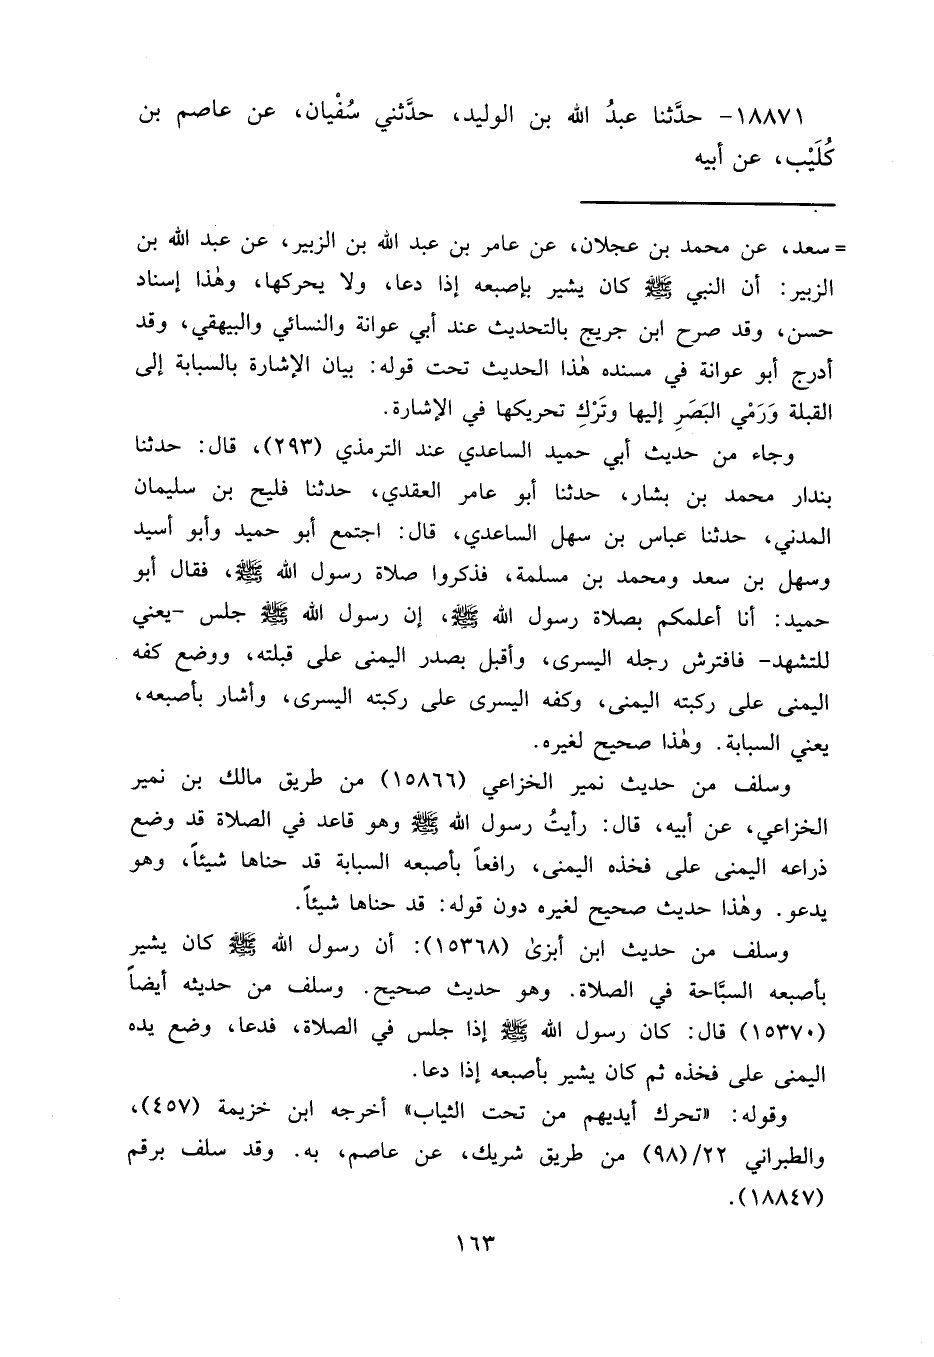 ١٨٨٧١- حدَّثنا عبدُ الله بن الوليد، حدَّثني سُفْيان، عن عاصم بن
كُلَيْب، عن أبيه
= سعد، عن محمد بن عجلان، عن عامر بن عبد الله بن الزبير، عن عبد الله بن
الزبير: أن النبي ﷺ كان يشير بإصبعه إذا دعا، ولا يحركها، وهٰذا إسناد
حسن، وقد صرح ابن جريج بالتحديث عند أبي عوانة والنسائي والبيهقي، وقد
أدرج أبو عوانة في مسنده هٰذا الحديث تحت قوله: بيان الإشارة بالسبابة إلى
القبلة وَرَمْي البَصَرِ إليها وتَرْكِ تحريكها في الإشارة.
وجاء من حديث أبي حميد الساعدي عند الترمذي (٢٩٣)، قال: حدثنا
بندار محمد بن بشار، حدثنا أبو عامر العقدي، حدثنا فليح بن سليمان
المدني، حدثنا عباس بن سهل الساعدي، قال: اجتمع أبو حميد وأبو أسيد
وسهل بن سعد ومحمد بن مسلمة، فذكروا صلاة رسول الله ﷺ، فقال أبو
حميد: أنا أعلمكم بصلاة رسول الله ﷺ، إن رسول الله ﷺ جلس -يعني
للتشهد- فافترش رجله اليسرى، وأقبل بصدر اليمنى على قبلته، ووضع كفه
اليمنى على ركبته اليمنى، وكفه اليسرى على ركبته اليسرى، وأشار بأصبعه،
يعني السبابة. وهٰذا صحيح لغيره.
وسلف من حديث نمير الخزاعي (١٥٨٦٦) من طريق مالك بن نمير
الخزاعي، عن أبيه، قال: رأيتُ رسول الله ﷺ وهو قاعد في الصلاة قد وضع
ذراعه اليمنى على فخذه اليمنى، رافعاً بأصبعه السبابة قد حناها شيئاً، وهو
يدعو. وهٰذا حديث صحيح لغيره دون قوله: قد حناها شيئاً.
وسلف من حديث ابن أبزىٰ (١٥٣٦٨): أن رسول الله ﷺ كان يشير
بأصبعه السبَّاحة في الصلاة. وهو حديث صحيح. وسلف من حديثه أيضاً
(١٥٣٧٠) قال: كان رسول الله ﷺ إذا جلس في الصلاة، فدعا، وضع يده
اليمنى على فخذه ثم كان يشير بأصبعه إذا دعا.
وقوله: «تحرك أيديهم من تحت الثياب» أخرجه ابن خزيمة (٤٥٧)،
والطبراني ٢٢/(٩٨) من طريق شريك، عن عاصم، به. وقد سلف برقم
(١٨٨٤٧).
١٦٣